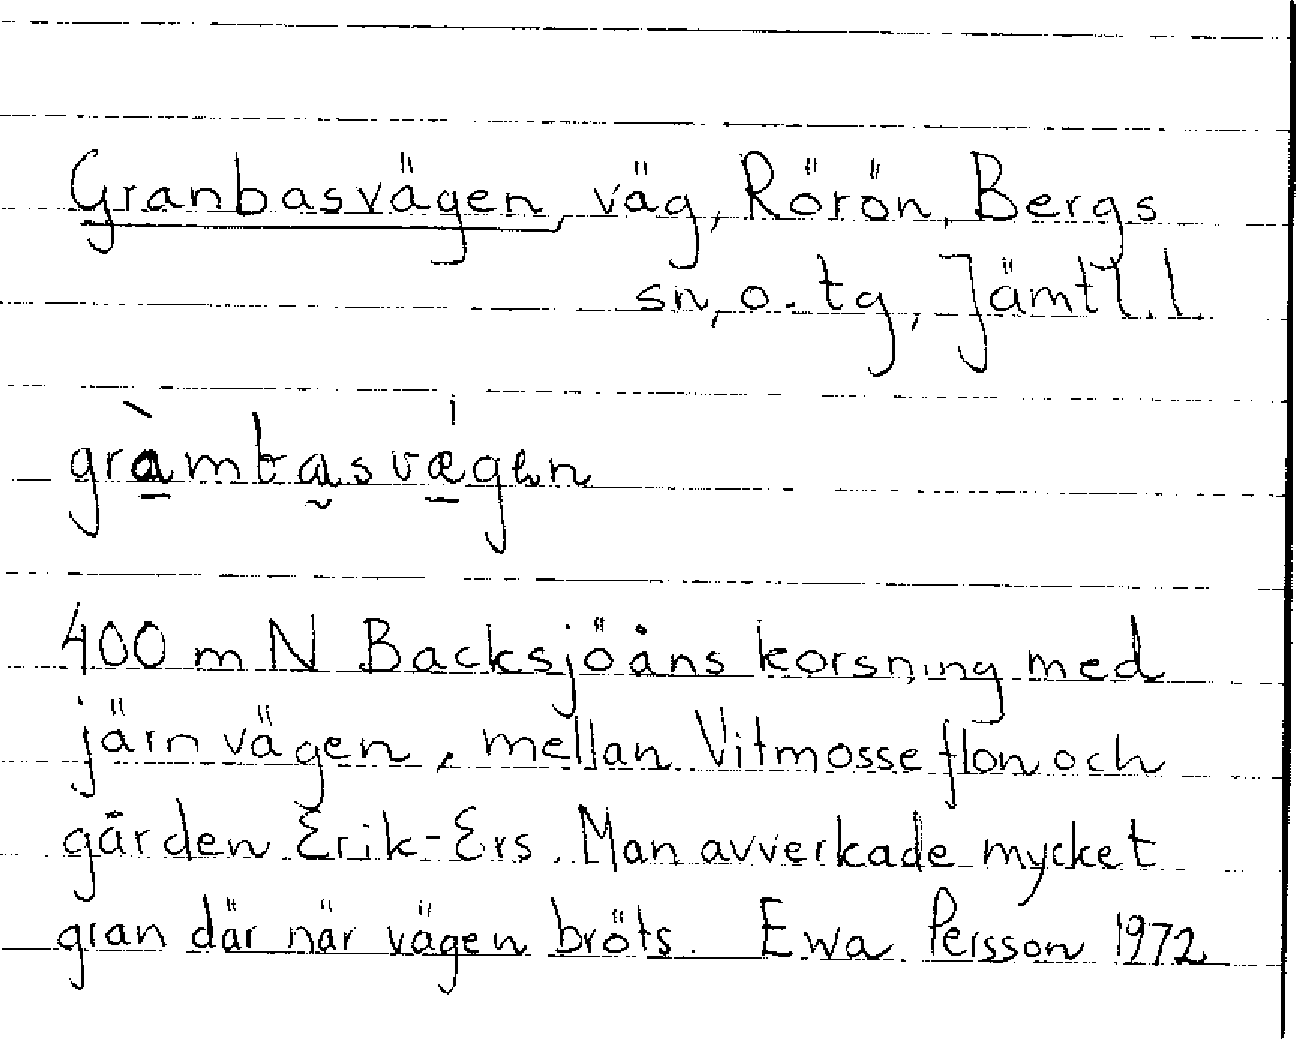 Granbasvägen, väg, Rörön, Bergs
sn, o. tg, Jämtl. l
gràmbasvægen
400 m N Backsjöåns korsning med
järnvägen, mellan Vitmosseflon och
gården Erik-Ers. Man avverkade mycket
gran där när vägen bröts. Ewa Persson 1972